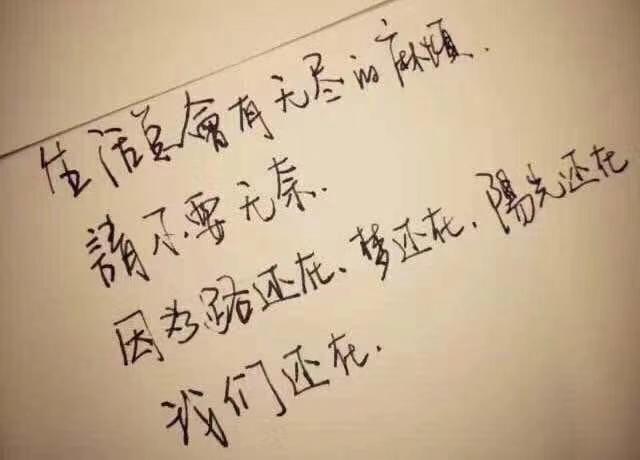 生活总會有无尽的麻烦.
請不要无奈.
因为路还在、梦还在、陽光还在
我们还在.